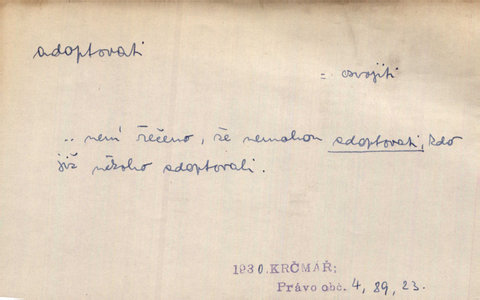 adoptovati
= osvojiti
.. není řečeno, že nemohou adoptovati, kdo
již někoho adoptovali.
1930. KRČMÁŘ:
Právo obč. 4, 89, 23.